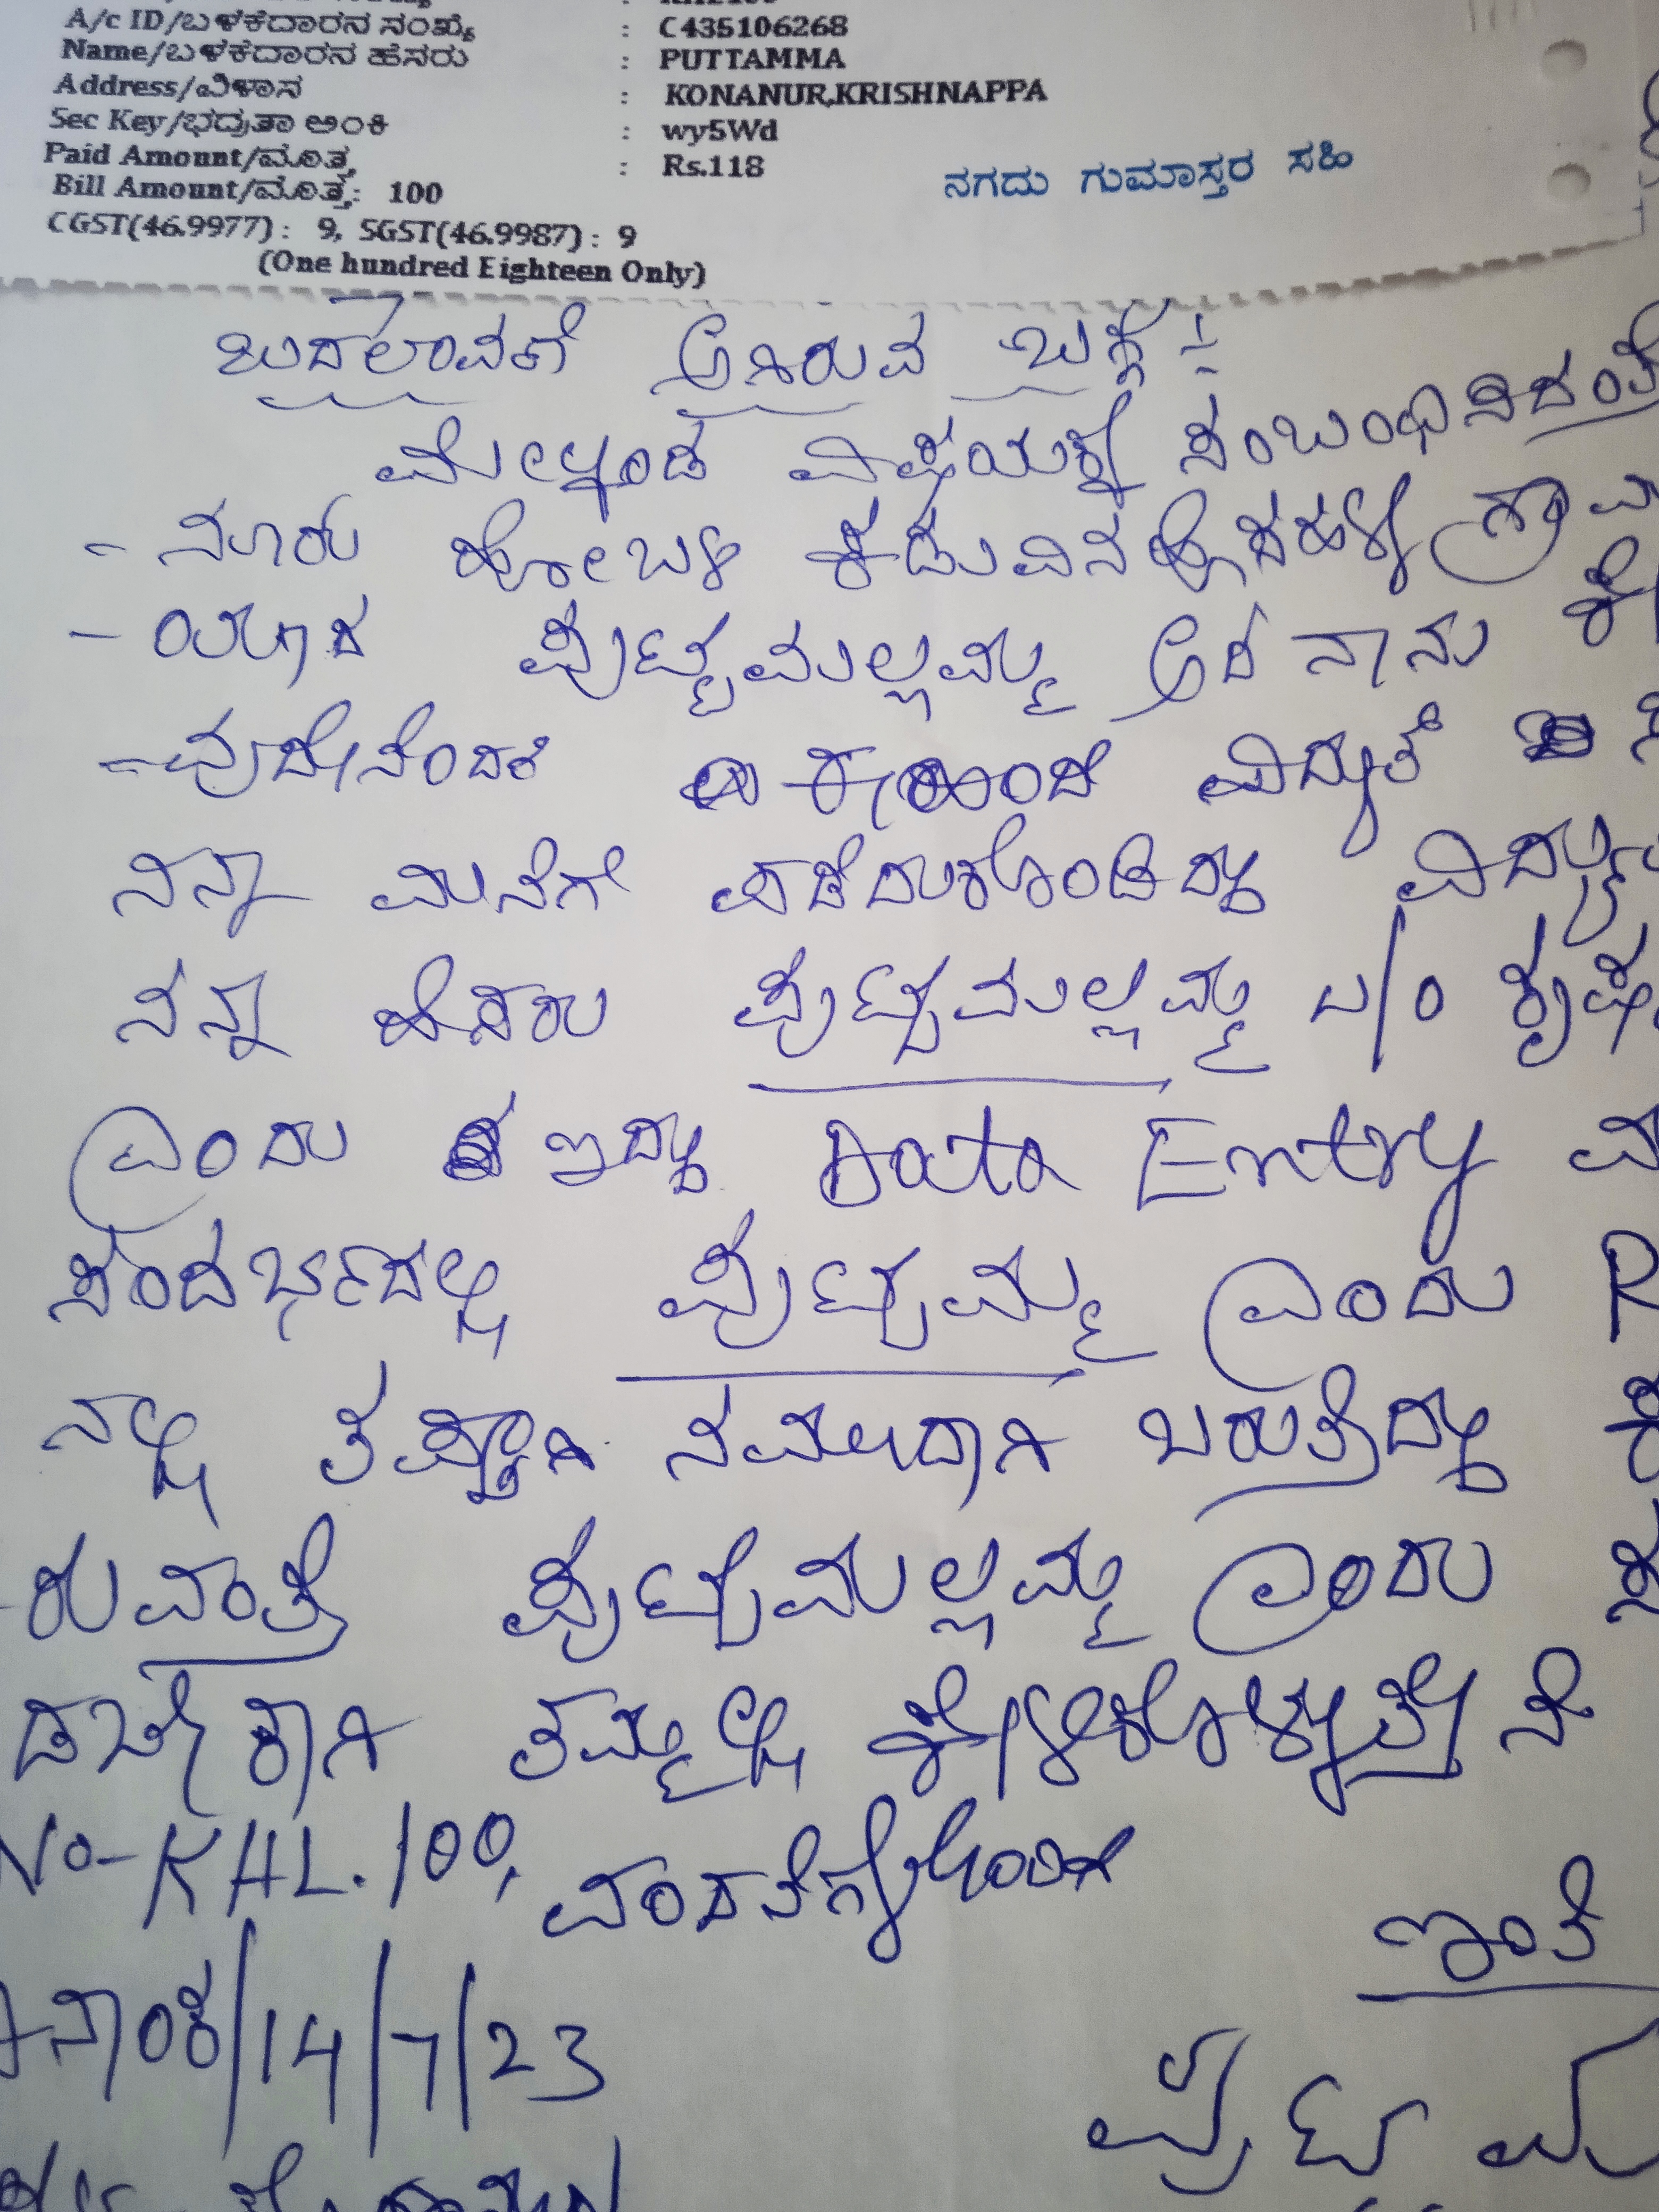 A/c ID/ಬಳಕೆದಾರನ ಸಂಖ್ಯೆ : C435106268
Name/ಬಳಕೆದಾರನ ಹೆಸರು : PUTTAMMA
Address/ವಿಳಾಸ : KONANUR,KRISHNAPPA
Sec Key/ಭದ್ರತಾ ಅಂಕಿ : wy5Wd
Paid Amount/ಮೊತ್ತ : Rs.118
ನಗದು ಗುಮಾಸ್ತರ ಸಹಿ
Bill Amount/ಮೊತ್ತ : 100
CGST(46.9977) : 9, SGST(46.9987) : 9
(One hundred Eighteen Only)
ಬದಲಾವಣೆ ಆಗಿರುವ ಬಗ್ಗೆ :-
ಮೇಲ್ಕಂಡ ವಿಷಯಕ್ಕೆ ಸಂಬಂಧಿಸಿದಂತೆ
- ನೂರು ಹೋಬಳಿ ಕಡುವಿನಹೊಸಹಳ್ಳಿ
- ಯಾದ ಪುಟ್ಟಮಲ್ಲಮ್ಮ ಆದ ನಾನು
- ವುದೇನೆಂದರೆ ಈ ಹಿಂದೆ ವಿದ್ಯುತ್
ನನ್ನ ಮನೆಗೇ ಪಡೆದುಕೊಂಡಿದ್ದು
ನನ್ನ ಹೆಸರು ಪುಟ್ಟಮಲ್ಲಮ್ಮ
ಎಂದು ಇದ್ದು Data Entry
ಸಂದರ್ಭದಲ್ಲಿ ಪುಟ್ಟಮ್ಮ ಎಂದು R
ನಲ್ಲಿ ತಪ್ಪಾಗಿ ನಮೂದಾಗಿ ಬರುತ್ತಿದ್ದು
ರುವಂತೆ ಪುಟ್ಟಮಲ್ಲಮ್ಮ ಎಂದು
ತಮ್ಮಲ್ಲಿ ಕೇಳಿಕೊಳ್ಳುತ್ತೇನೆ
No-KHL.100, ವಂದನೆಗಳೊಂದಿಗೆ
ಇಂತಿ
ನಾಂಕ/14/7/23
ಪುಟ್ಟಮ